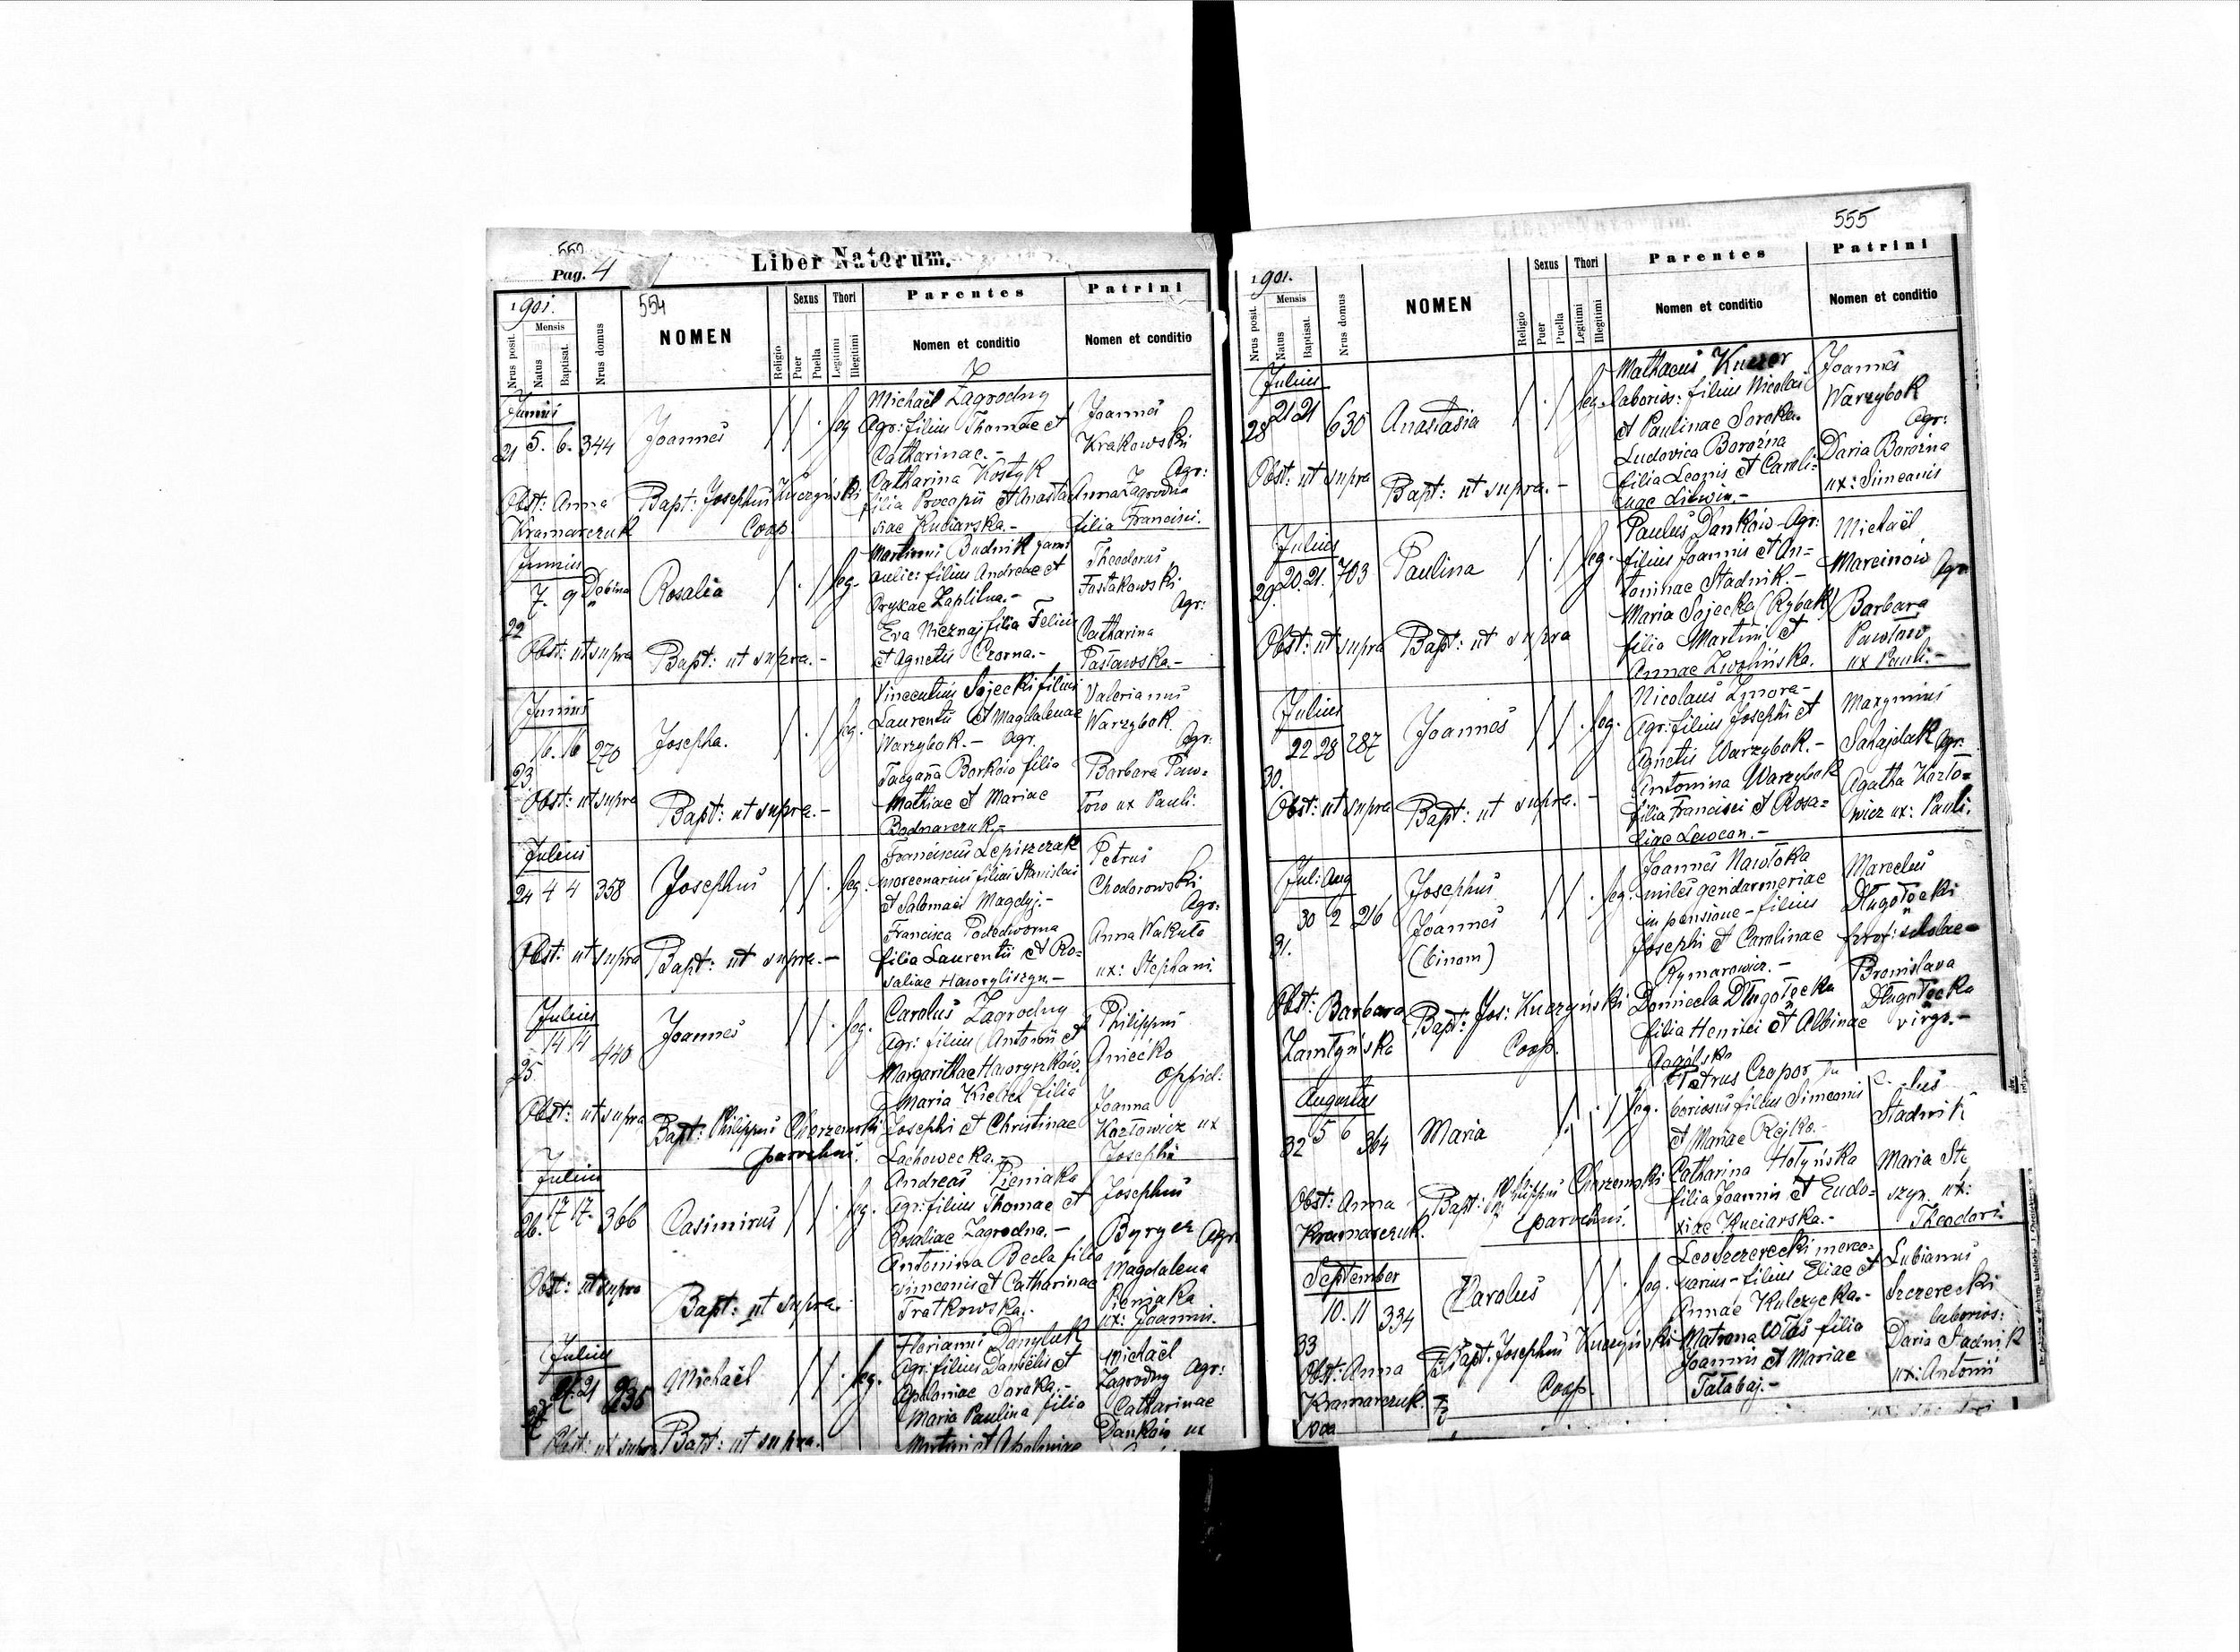 552
Pag. 4
Liber Natorum.
1901.
554
Nrus posit.
Mensis
Natus
Baptisat.
Nrus domus
NOMEN
Religio
Sexus
Puer
Puella
Thori
Legitimi
Illegitimi
Parentes
Nomen et conditio
Patrini
Nomen et conditio
Junius
21 5. 6. 344
Joannes
leg
Michaël Zagrodny
Agr: filius Thomae et
Catharinae.-
Catharina Kostyk
filia Procopii et Anasta
siae Kuciarska.-
Joannes
Krakowski
Agr:
Anna Zagrodna
filia Francisci.
Obst: Anna
Kramarczuk
Bapt: Josephus Kuczyński
Coop.
Junius
22 7. 9 Dobina
Rosalia
leg.
Martinus Budnik
aulic: filius Andreae et
Eva Nieznaj filia Felicis
et Agnetis Czorna.-
Theodorus
Agr:
Catharina
Pasławska-
Obst: ut supra
Bapt: ut supra.-
Junius
23. 16. 16 270
Josepha.
leg.
Vincentius Sojecki filius
Laurentii et Magdalenae
Warzybok.- Agr.
Borków filia
Mathiae et Mariae
Bodnarczuk.-
Valerianus
Warzybok.
Agr:
Barbara Paw-
łow ux Pauli.
Obst: ut supra
Bapt: ut supra.-
Julius
24 4 4 358
Josephus
leg.
Franciscus Lepiszczak
mercenarius filius Stanislai
et Salomeae Magdyj.-
Francisca Podedworna
filia Laurentii et Ro-
saliae Haworyliszyn.-
Petrus
Chodorowski
Agr:
Anna Wakuła
ux: Stephani.
Obst: ut supra
Bapt: ut supra.-
Julius
25 14 14 440
Joannes
leg.
Carolus Zagrodny
Agr: filius Antonii et
Margarithae Hawryszków.
Maria Kielich filia
Josephi et Christinae
Lachowecka.-
Philippus
Aniećko
oppid:
Joanna
Kozłowicz ux
Josephi
Obst: ut supra
Bapt: Philippus Chorzemski
parochus.
Julius
26. 17 17. 366
Casimirus
leg.
Andreas Pieniaka
Agr: filius Thomae et
Rosaliae Zagrodna.-
Antonina Becla filia
Simeonis et Catharinae
Fratkowska.-
Josephus
Agr:
Magdalena
Pieniaka
ux: Joannis.
Obst: ut supra
Bapt: ut supra.
Julius
27 21. 21
Michaël
leg.
Florianus Danyluk
Agr: filius Danielis et
Apoloniae Soroka.-
Maria Paulina filia
Martini et Apoloniae
Michaël
Zagrodny Agr:
Catharinae
Danków ux
Obst: ut supra
Bapt: ut supra.
555
1901.
Nrus posit.
Mensis
Natus
Baptisat.
Nrus domus
NOMEN
Religio
Sexus
Puer
Puella
Thori
Legitimi
Illegitimi
Parentes
Nomen et conditio
Patrini
Nomen et conditio
Julius
28 21 21 630
Anastasia
leg.
Mathaeus
laborios: filius Nicolai
et Paulinae Soroka.
Ludovica Borożna
filia Leonis et Caroli-
nae Litwin.-
Joannes
Warzybok
Agr:
Daria Borożna
ux: Simeonis
Obst: ut supra
Bapt: ut supra.-
Julius
29. 20. 21. 703
Paulina
leg.
Paulus Danków- Agr:
filius Joannis et An-
toninae Stadnik.-
Maria Sojecka (Rybak)
filia Martini et
Annae Zwolińska.
Michaël
Marcinów Agr.
Barbara
Pawłow
ux Pauli.-
Obst: ut supra
Bapt: ut supra
Julius
30. 22 28 287
Joannes
leg.
Nicolaus Zmora-
Agr: filius Josephi et
Agnetis Warzybok.-
Antonina Warzybok
filia Francisci et Rosa-
liae Lewcan.-
Maxymius
Sahajdak Agr:
Agatha Kozło-
wicz ux: Pauli.
Obst: ut supra
Bapt: ut supra.-
Jul: Aug
31. 30 2 216
Josephus
Joannes
(binom)
leg.
Joannes Nawłoka
miles gendarmeriae
in pensione- filius
Josephi et Carolinae
Rymarowicz.-
Domicela Długołęcka
filia Henrici et Albinae
Marcelus
Długołęcki
prof: scholae-
Bronislava
Długołęcka
virgo.-
Obst: Barbara
Bapt: Jos: Kuczyński
Coop.
Augustus
32 5 6 364
Maria
leg.
Petrus Czopor la
boriosus filius Simeonis
et Mariae Rejko.-
Catharina Hołyńska
filia Joannis et Eudo-
xiae Kuciarska.-
Stadnik
Maria Ste
szyn. ux:
Theodori.
Obst: Anna
Kramarczuk.
Bapt: Philippus Chorzemski
parochus.
September
33 10. 11 334
Carolus
leg.
Leo Szczerecki merce-
narius- filius Eliae et
Annae Kulczycka.-
Matrona Włas filia
Joannis et Mariae
Tatabaj.-
Lubianus
Szczerecki
laborios:
Daria Stadnik
ux: Antonii
Obst: Anna
Kramarczuk.
Bapt. Josephus Kuczyński
Coop.